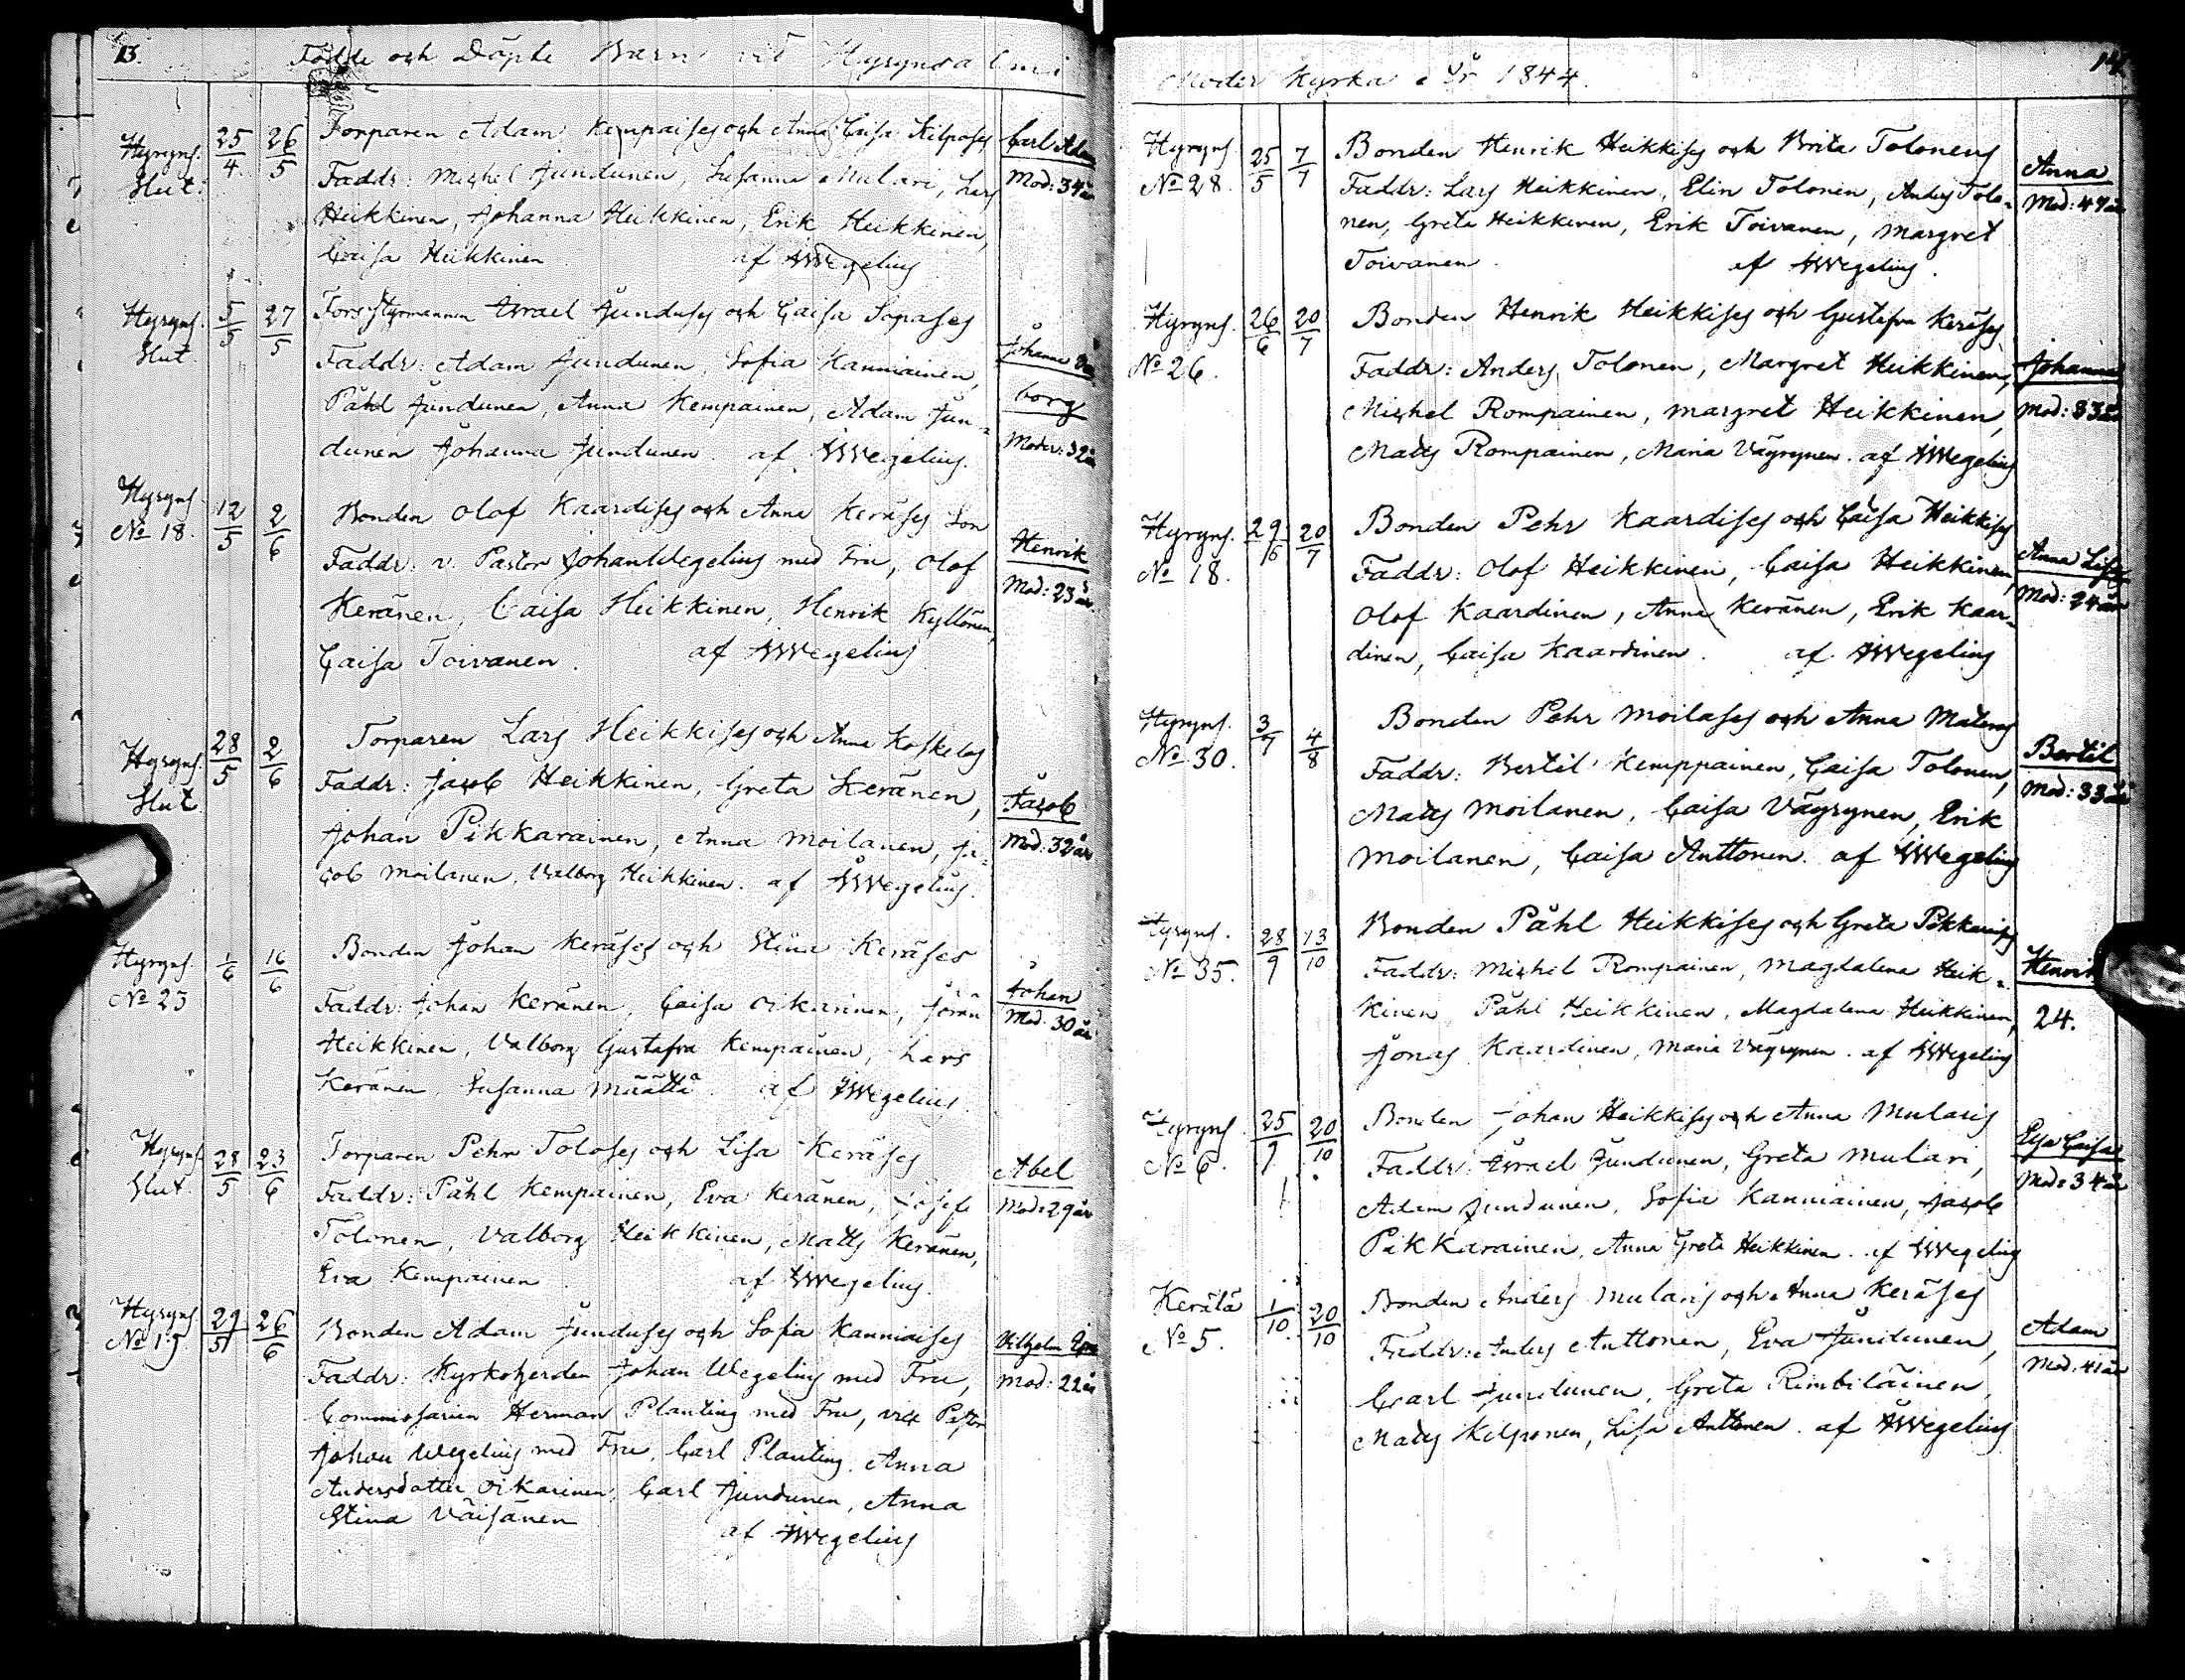 13.
Födde och Döpte Barn vid Hyrynsalmi
Hyryns. Slut. 25/4 26/5 Torparen Adam Kempaises och Anna Caisa Kilposes Carl Adam
Faddr: Michel Jundunen, Susanna Mulari, Lars Mod: 34 år
Heikkinen, Johanna Heikkinen, Erik Heikkinen,
Caisa Heikkinen af JWegelius
Hyryns. Slut 5/5 27/5 Forsstyrmannen Israel Junduses och Caisa Sopases
Faddr: Adam Jundunen, Sofia Kanniainen, Johanna
Påhl Jundunen, Anna Kempainen, Adam Jun- borg
dunen Johanna Jundunen. af JWegelius. Moder: 32 år
Hyryns. No 18. 12/5 2/6 Bonden Olof Kaardises och Anna Keräses Son
Faddr: v. Pastor Johan Wegelius med Fru, Olof Henrik
Keränen, Caisa Heikkinen, Henrik Kyllönen, Mod: 23 år.
Caisa Toivanen. af JWegelius
Hyryns. Slut. 28/5 2/6 Torparen Lars Heikkises och Anna Koskelos
Faddr: Jacob Heikkinen, Greta Keränen, Jacob
Johan Pikkarainen, Anna Moilanen, Ja- Mod: 32 år
cob Moilanen, Valborg Heikkinen. af JWegelius.
Hyryns. No 23 1/6 16/6 Bonden Johan Keräses och Stina Keräses
Faddr: Johan Keränen, Caisa Oikarinen, Göran Johan
Heikkinen, Valborg Gustafva Kempainen, Lars Mod. 30 år
Keränen, Susanna Määttä. af JWegelius
Hyryns. Slut. 28/5 23/6 Torparen Pehr Toloses och Lisa Keräses Abel
Faddr: Påhl Kempainen, Eva Keränen, Josef Mod: 29 år
Tolonen, Valborg Heikkinen, Matts Keränen,
Eva Kempainen af JWegelius.
Hyryns. No 19 29/5 26/6 Bonden Adam Junduses och Sofia Kanniaises Vilhelm
Faddr: Kyrkoherden Johan Wegelius med Fru, Mod: 22 år
Commissarien Herman Planting med Fru, vice Pastor
Johan Wegelius med Fru, Carl Planting, Anna
Andersdotter Oikarinen, Carl Jundunen, Anna
Stina Väisänen
af JWegelius
14.
Moder Kyrka i År 1844.
Hyryns. No 28. 25/5 7/7 Bonden Henrik Heikkises och Brita Tolonens Anna
Faddr: Lars Heikkinen, Elin Tolonen, Anders Tolo- Mod: 47 år
nen, Greta Heikkinen, Erik Toivanen, Margret
Toivanen. af JWegelius.
Hyryns. No 26. 26/6 20/7 Bonden Henrik Heikkises och Gustafva Keräses
Faddr: Anders Tolonen, Margret Heikkinen, Johanna
Michel Rompainen, Margret Heikkinen, Mod: 33 år
Matts Rompainen, Maria Väyrynen. af JWegelius
Hyryns. No 18. 29/6 20/7 Bonden Pehr Kaardises och Caisa Heikkises
Faddr: Olof Heikkinen, Caisa Heikkinen, Anna Lisa
Olof Kaardinen, Anna Keränen, Erik Kaar- Mod: 24 år
dinen, Caisa Kaardinen. af JWegelius
Hyryns. No 30. 3/7 4/8 Bonden Pehr Moilases och Anna
Faddr: Bertil Kemppainen, Caisa Tolonen, Bertil
Matts Moilanen, Caisa Väyrynen, Erik Mod: 33 år
Moilanen, Caisa Anttonen. af JWegelius
Hyryns. No 35. 28/9 13/10 Bonden Påhl Heikkises och Greta
Faddr: Michel Rompainen, Magdalena Heik- Henrik
kinen, Påhl Heikkinen, Magdalena Heikkinen, 24.
Jonas Kaardinen, Maria Väyrynen. af JWegelius
Hyryns. No 6. 25/9 20/10 Bonden Johan Heikkises och Anna Mularis
Faddr: Israel Jundunen, Greta Mulari, Elsa Caisa
Adam Jundunen, Sofia Kanniainen, Jacob Mod: 34 år
Pikkarainen, Anna Greta Heikkinen. af JWegelius
Kerälä No 5. 1/10 20/10 Bonden Anders Mularis och Anna Keräses
Faddr: Anders Anttonen, Eva Jundunen, Adam
Carl Jundunen, Greta Rimbiläinen, Mod: 41 år
Matts Kilponen, Lisa Anttonen. af JWegelius